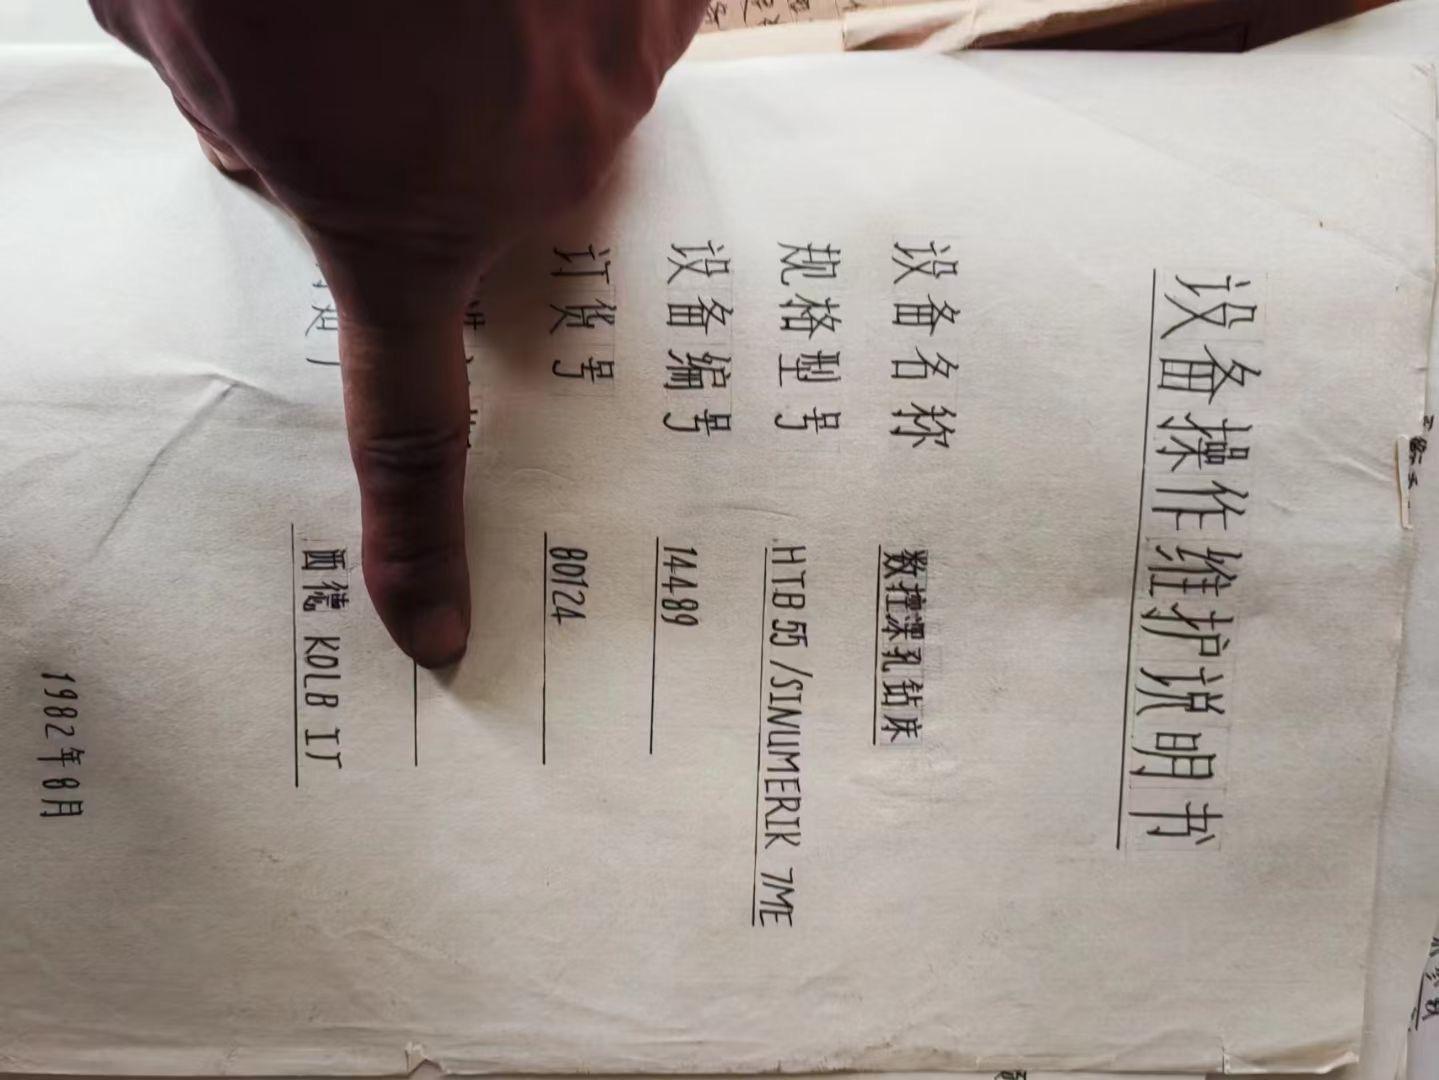 设备操作维护说明书
设备名称 数控深孔钻床
规格型号 HTB 55 /SINUMERIK 7ME
设备编号 14489
订货号 80124
西德 KOLB IT
1982年8月